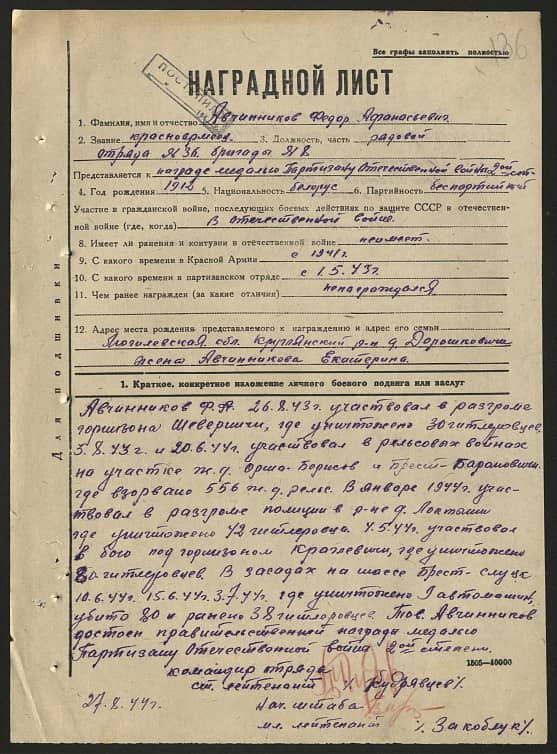 136
Все графы заполнять полностью
НАГРАДНОЙ ЛИСТ
1. Фамилия, имя и отчество Авчинников Федор Афанасьевич
2. Звание красноармеец 3. Должность, часть рядовой
отряда № 36 бригады № 8
Представляется к награде медалью Партизану Отечественной войны 2ой ст.
4. Год рождения 1912 5. Национальность белорус 6. Партийность беспартийный
Участие в гражданской войне, последующих боевых действиях по защите СССР в отечествен-
ной войне (где, когда) В Отечественной войне.
8. Имеет ли ранения и контузии в отечественной войне неимеет.
9. С какого времени в Красной Армии с 1941г.
10. С какого времени в партизанском отряде с 1.5.43г.
11. Чем ранее награжден (за какие отличия) ненаграждался
12. Адрес места рождения представляемого к награждению и адрес его семьи
Могилевская обл. Круглянский р-н д. Дорошковичи
жена Авчинникова Екатерина.
Для подшивки
1. Краткое, конкретное изложение личного боевого подвига или заслуг
Авчинников Ф.А. 26.8.43г. участвовал в разгроме
горнизона Шеверничи, где уничтожено 30 гитлеровцев.
5.8.43г. и 20.6.44г. участвовал в рельсовых войнах
на участке ж.д. Орша-Борисов и Брест-Барановичи
где взорвано 556 ж.д. рельс. В январе 1944г. учас-
твовал в разгроме полиции в р-не д. Локтыши
где уничтожено 42 гитлеровца. 4.5.44г. участвовал
в бою под горнизоном где уничтожено
гитлеровцев. В засадах на шоссе Брест-Слуцк
10.6.44г. 15.6.44г. 3.7.44г. где уничтожено 1 автомашин,
убито 20 и ранено 38 гитлеровцев. Тов. Авчинников
достоен правительственной награды медалью
Партизану Отечественной война 2ой степени.
1505—40000
командир отряда
ст. лейтенант /Кудрявцев/
27.8.44г.
Нач. штаба
мл. лейтенант /Закоблук/